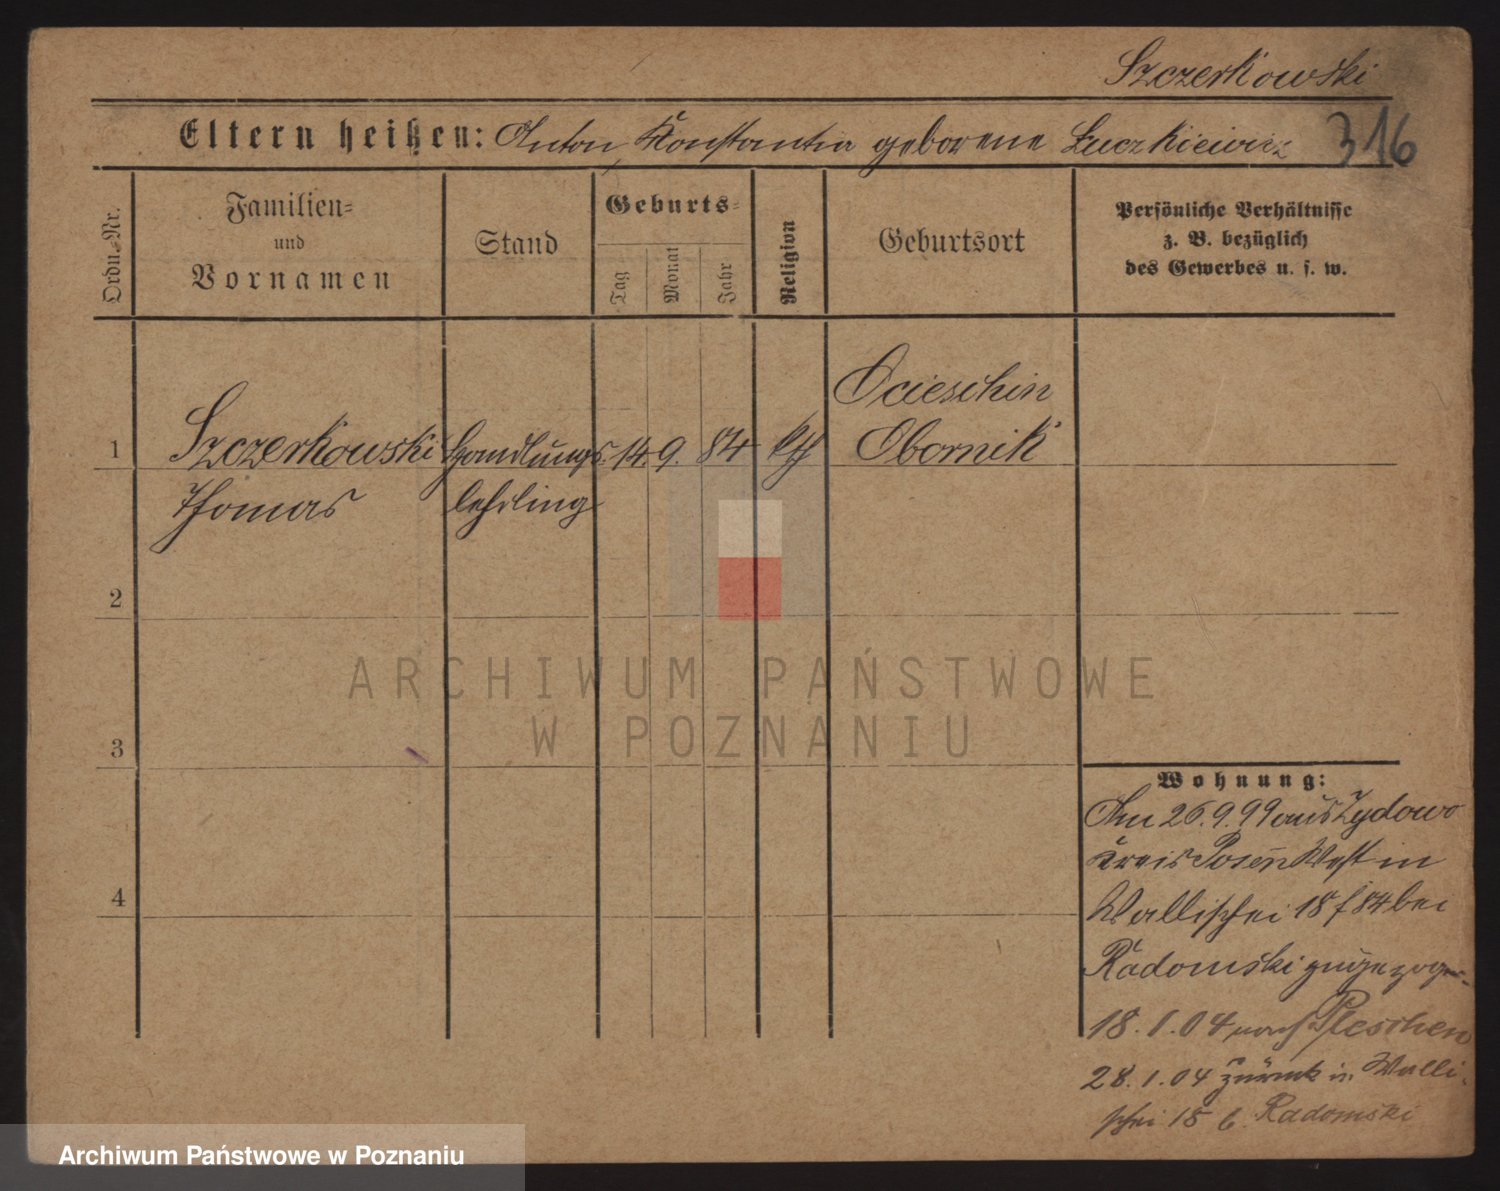 Szczerkowski
Eltern heißen: Anton, Konstantia geborene Łuczkiewicz 316
Ordn.-Nr.
Familien-
und
Vornamen
Stand
Geburts-
Tag
Monat
Jahr
Religion
Geburtsort
Persönliche Verhältnisse
z. B. bezüglich
des Gewerbes u. s. w.
Ocieschin
1 Szczerkowski Handlungs- 14. 9. 84 kth Obornik
Thomas lehrling
2
3
4
Wohnung:
Am 26.9.99 aus Zydowo
Kreis Posen West in
Wallischei 18 f 84 bei
Radomski zugezogen
18.1.04 nach Pleschen
28.1.04 zurück in Walli-
schei 18 b. Radomski
ARCHIWUM PAŃSTWOWE
W POZNANIU
Archiwum Państwowe w Poznaniu